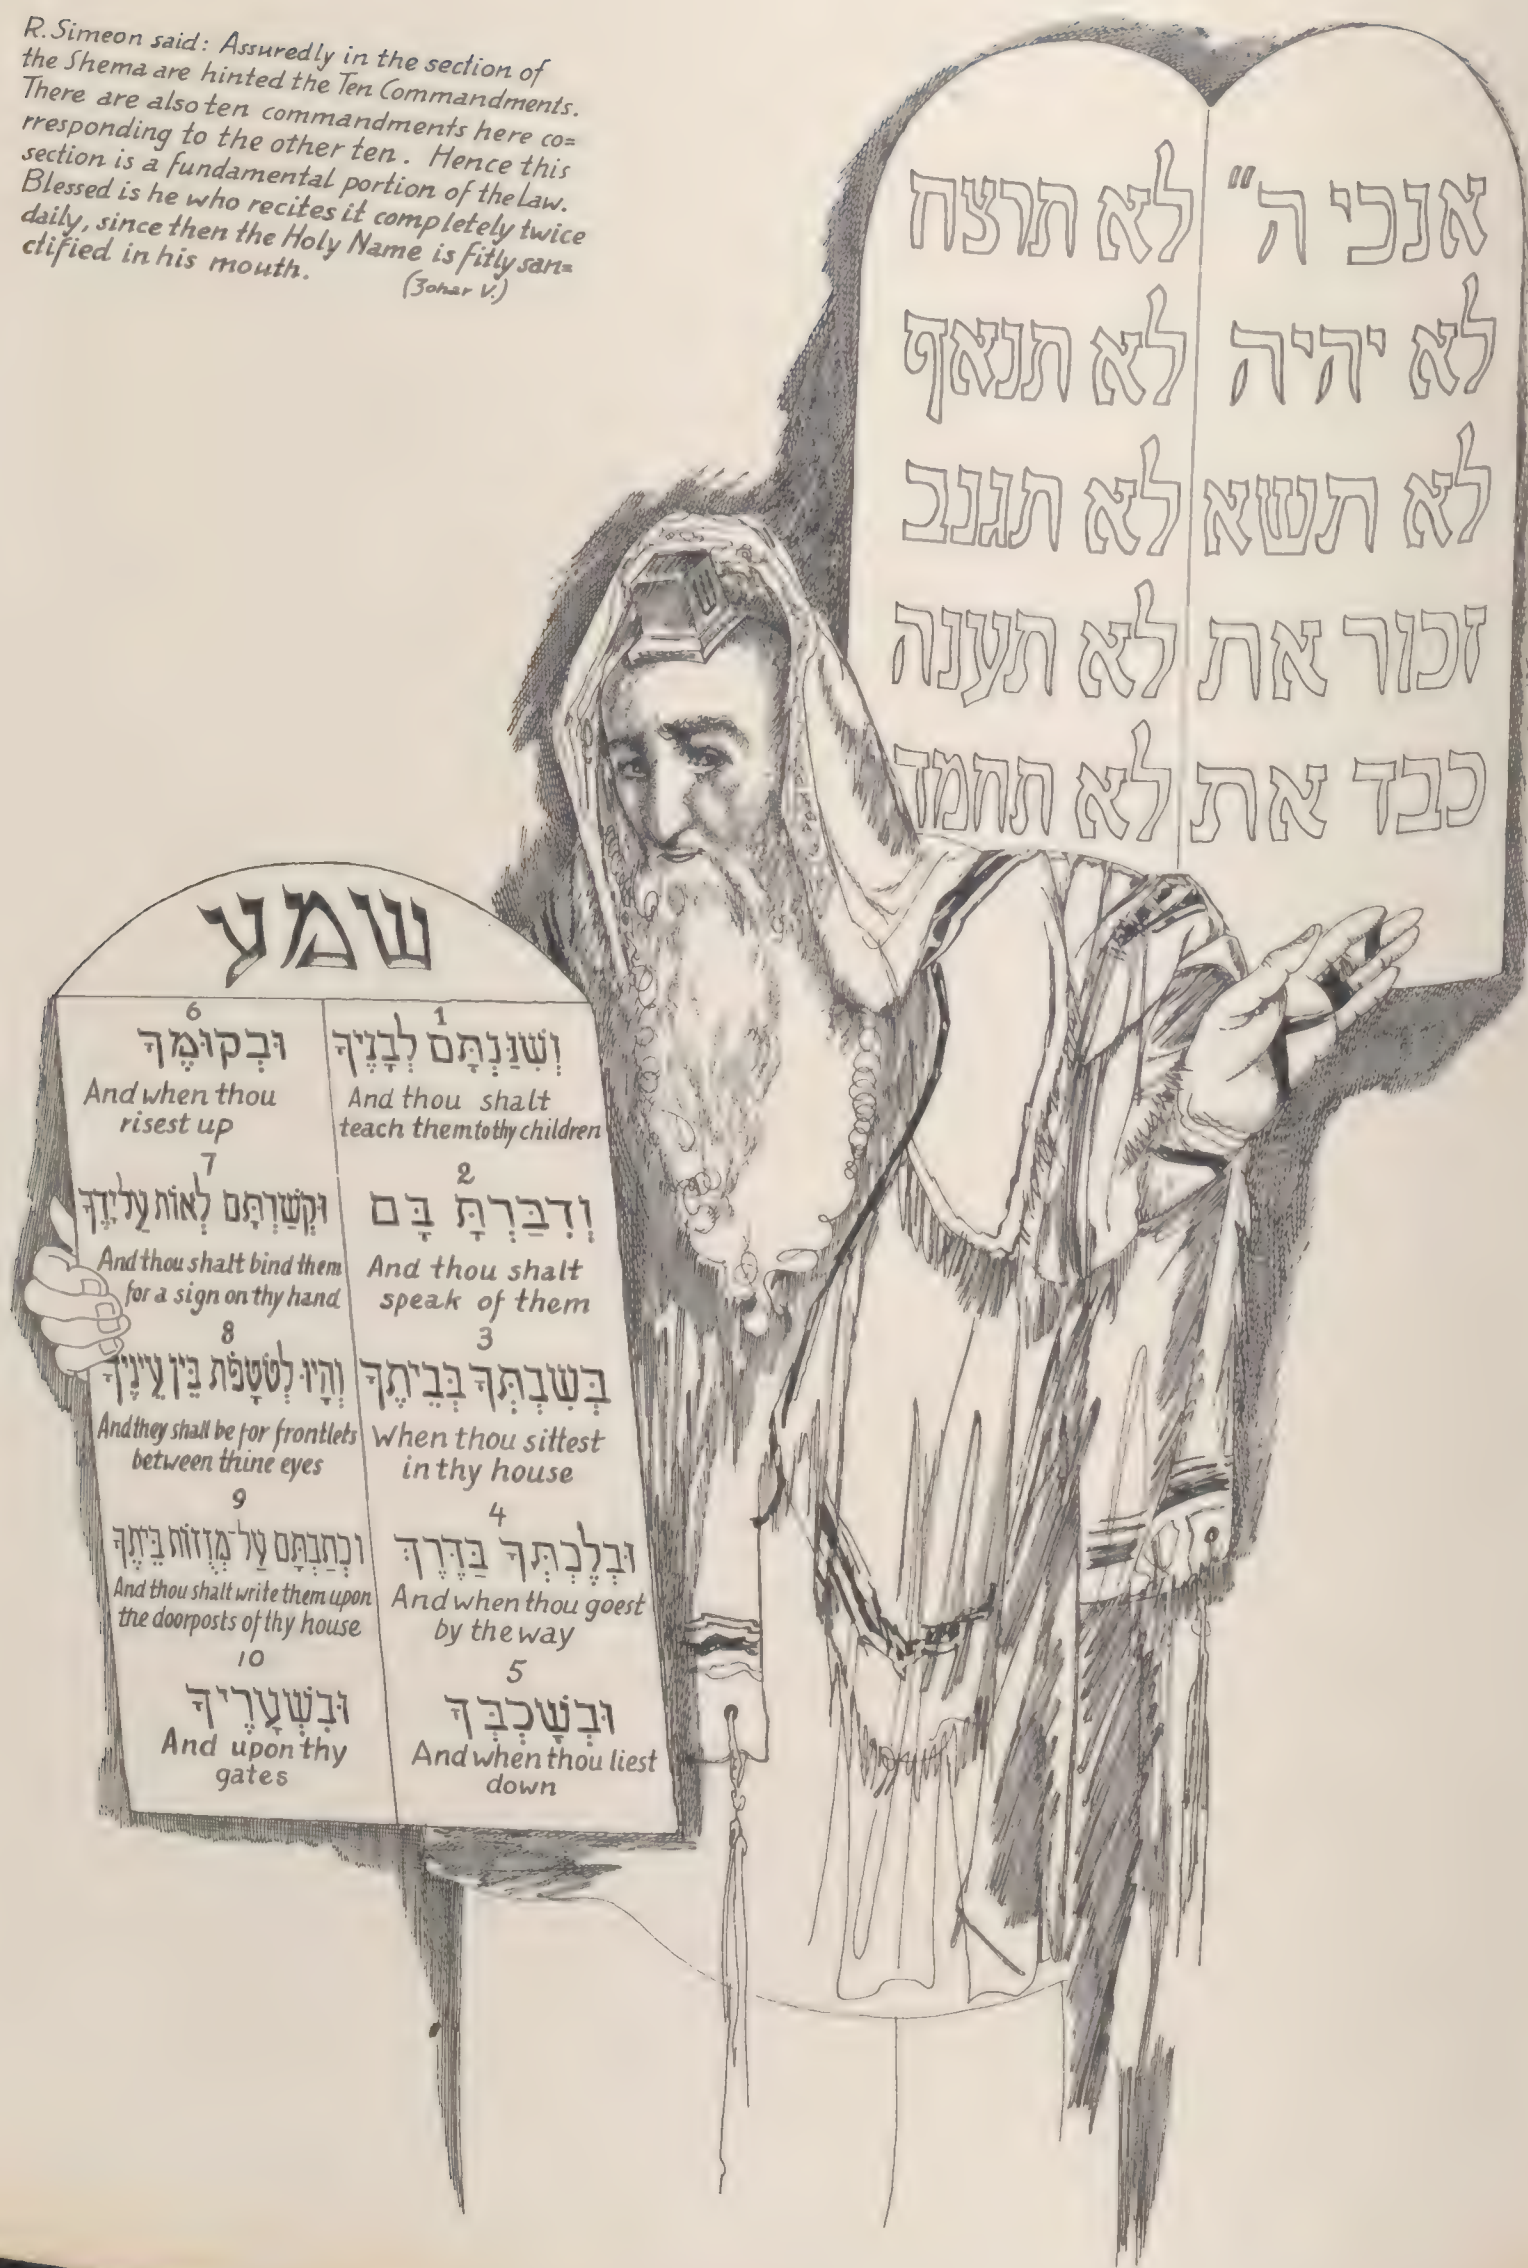 R. Simeon said: Assuredly in the section of
the Shema are hinted the Ten Commandments.
There are also ten commandments here co=
rresponding to the other ten. Hence this
section is a fundamental portion of the Law.
Blessed is he who recites it completely twice
daily, since then the Holy Name is fitly san=
ctified in his mouth.
(Zohar V.)
אנכי ה"
לא יהיה
לא תשא
זכור את
כבד את
לא תרצח
לא תנאף
לא תגנב
לא תענה
לא תחמד
שמע
1
וְשִׁנַּנְתָּם לְבָנֶיךָ
And thou shalt
teach them to thy children
2
וְדִבַּרְתָּ בָּם
And thou shalt
speak of them
3
בְּשִׁבְתְּךָ בְּבֵיתֶךָ
When thou sittest
in thy house
4
וּבְלֶכְתְּךָ בַּדֶּרֶךְ
And when thou goest
by the way
5
וּבְשָׁכְבְּךָ
And when thou liest
down
6
וּבְקוּמֶךָ
And when thou
risest up
7
וּקְשַׁרְתָּם לְאוֹת עַל יָדֶךָ
And thou shalt bind them
for a sign on thy hand
8
וְהָיוּ לְטֹטָפֹת בֵּין עֵינֶיךָ
And they shall be for frontlets
between thine eyes
9
וּכְתַבְתָּם עַל־מְזֻזוֹת בֵּיתֶךָ
And thou shalt write them upon
the doorposts of thy house
10
וּבִשְׁעָרֶיךָ
And upon thy
gates
ש